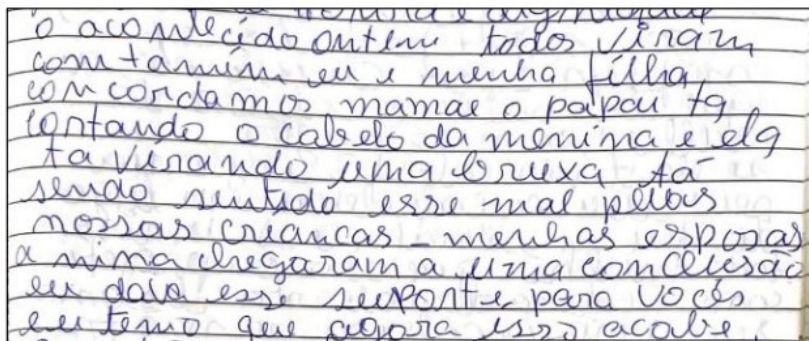 o acontecido ontem todos viram
com tamém eu e menha filha,
concordamos mamae o papai ta
contando o cabelo da menina e ela
ta virando uma bruxa tá
sendo sentido esse mal pelas
nossas criancas - menhas esposas
a nina chegaram a uma conclusão
eu dava esse suporte para vocês
eu temo que agora isso acabe.